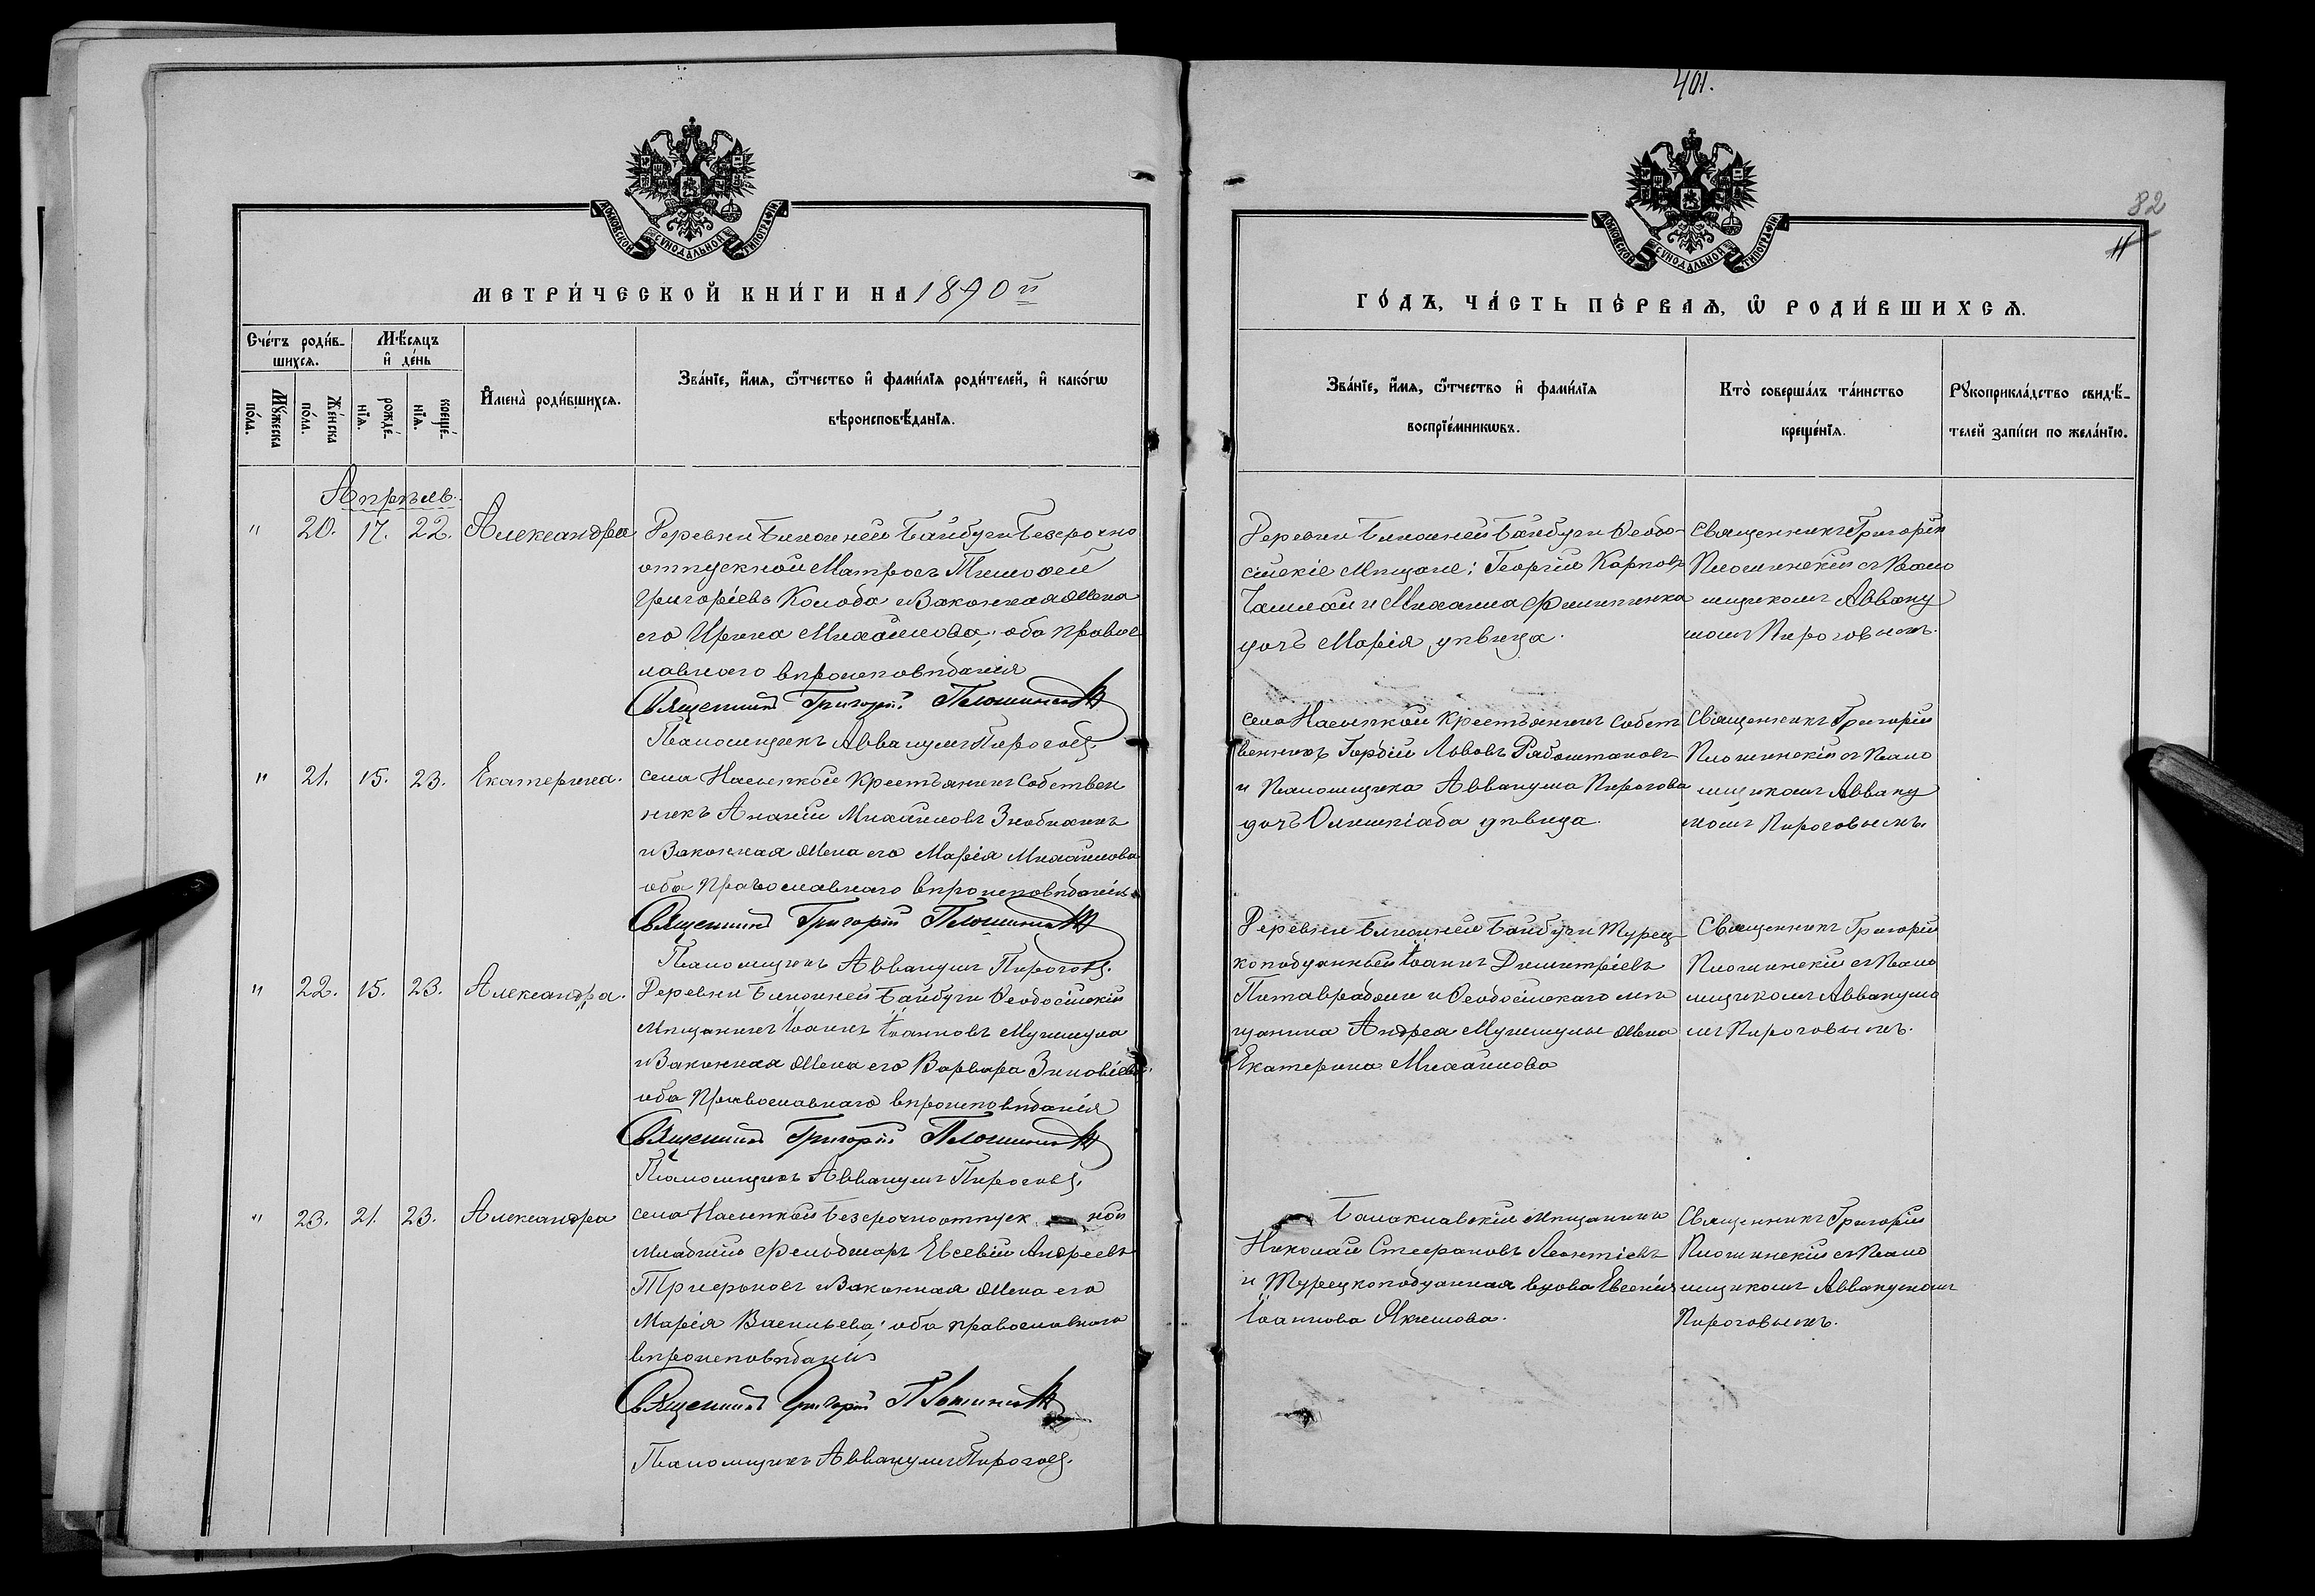 401.
82
11
МОСКОВСКОЙ СѴНОДАЛЬНОЙ ТИПОГРАФІИ
МОСКОВСКОЙ СѴНОДАЛЬНОЙ ТИПОГРАФІИ
МЕТРИ́ЧЕСКОЙ КНИ́ГИ НА 1890й
ГО́ДЪ, ЧА́СТЬ ПЕ́РВАѦ, Ѡ РОДИ́ВШИХСѦ.
Сче́тъ роди́в-
шихсѧ.
Мѣ́сяцъ
и де́нь
Мꙋ́жеска
по́ла.
Же́нска
по́ла.
рожде́-
нїѧ.
креще́-
нїѧ.
Имена̀ роди́вшихсѧ.
Зва́нїе, и́мѧ, ѻ́тчество и фами́лїѧ роди́телей, и како́гѡ
вѣроисповѣ́данїѧ.
Зва́нїе, и́мѧ, ѻ́тчество и фами́лїѧ
воспрїе́мникѡвъ.
Кто̀ соверша́лъ та́инство
креще́нїѧ.
Рꙋкоприкла́дство свидѣ́-
телей за́писи по жела́нїю.
Апрѣль.
" 20. 17. 22. Александра
Деревни Ближней Байбуги Безсрочно
отпускной Матросъ Тимофей
Григоріевъ Колоба и Законная жена
его Ирина Михайлова; оба правос
лавнаго вѣроисповѣданія
Священникъ Григорій Плошинскій
Псаломщикъ Аввакумъ Пироговъ.
Деревни Ближней Байбуги Ѳеодо-
сійскіе Мѣщане: Георгій Карповъ
и Михаила Филипенка
дочь Марія дѣвица.
Священникъ Григорій
Плошинскій съ Псало
мщикомъ Авваку
момъ Пироговымъ.
" 21. 15. 23. Екатерина.
села Насыпкой Крестьянинъ Собствен
никъ Ананій Михайловъ Знобихинъ
и Законная жена его Марія Михайлова
оба Православнаго вѣроисповѣданія
Священникъ Григорій Плошинскій
Псаломщикъ Аввакумъ Пироговъ.
села Насыпкой Крестьянинъ Собст
венникъ Гордій Львовъ
и Псаломщика Аввакума Пирогова
дочь Олимпіада дѣвица.
Священникъ Григорій
Плошинскій съ Псало
мщикомъ Авваку
момъ Пироговымъ.
" 22. 15. 23. Александра.
Деревни Ближней Байбуги Ѳеодосійскій
Мѣщанинъ Іоаннъ Іоанновъ
и Законная жена его Варвара Зиновіева;
оба Православнаго вѣроисповѣданія
Священникъ Григорій Плошинскій
Псаломщикъ Аввакумъ Пироговъ.
Деревни Ближней Байбуги Турец-
коподданный Іоаннъ Димитріевъ
и Ѳеодосійскаго мѣ
щанина Андрея жена
Екатерина Михайлова
Священникъ Григорій
Плошинскій съ Псало
мщикомъ Аввакумо
мъ Пироговымъ.
" 23. 21. 23. Александра
села Насыпкой безсрочноотпуск ной
младшій фельдшеръ Евсевій Андреевъ
Трифоновъ и Законная жена его
Марія Васильева; оба православнаго
вѣроисповѣданія
Священникъ Григорій Плошинскій
Псаломщикъ Аввакумъ Пироговъ.
Балаклавскій мѣщанинъ
Николай Стефановъ Леонтіевъ
и Турецкоподданная вдова Евгенія
Іоаннова Якимова.
Священникъ Григорій
Плошинскій съ Псало
мщикомъ Аввакумомъ
Пироговымъ.